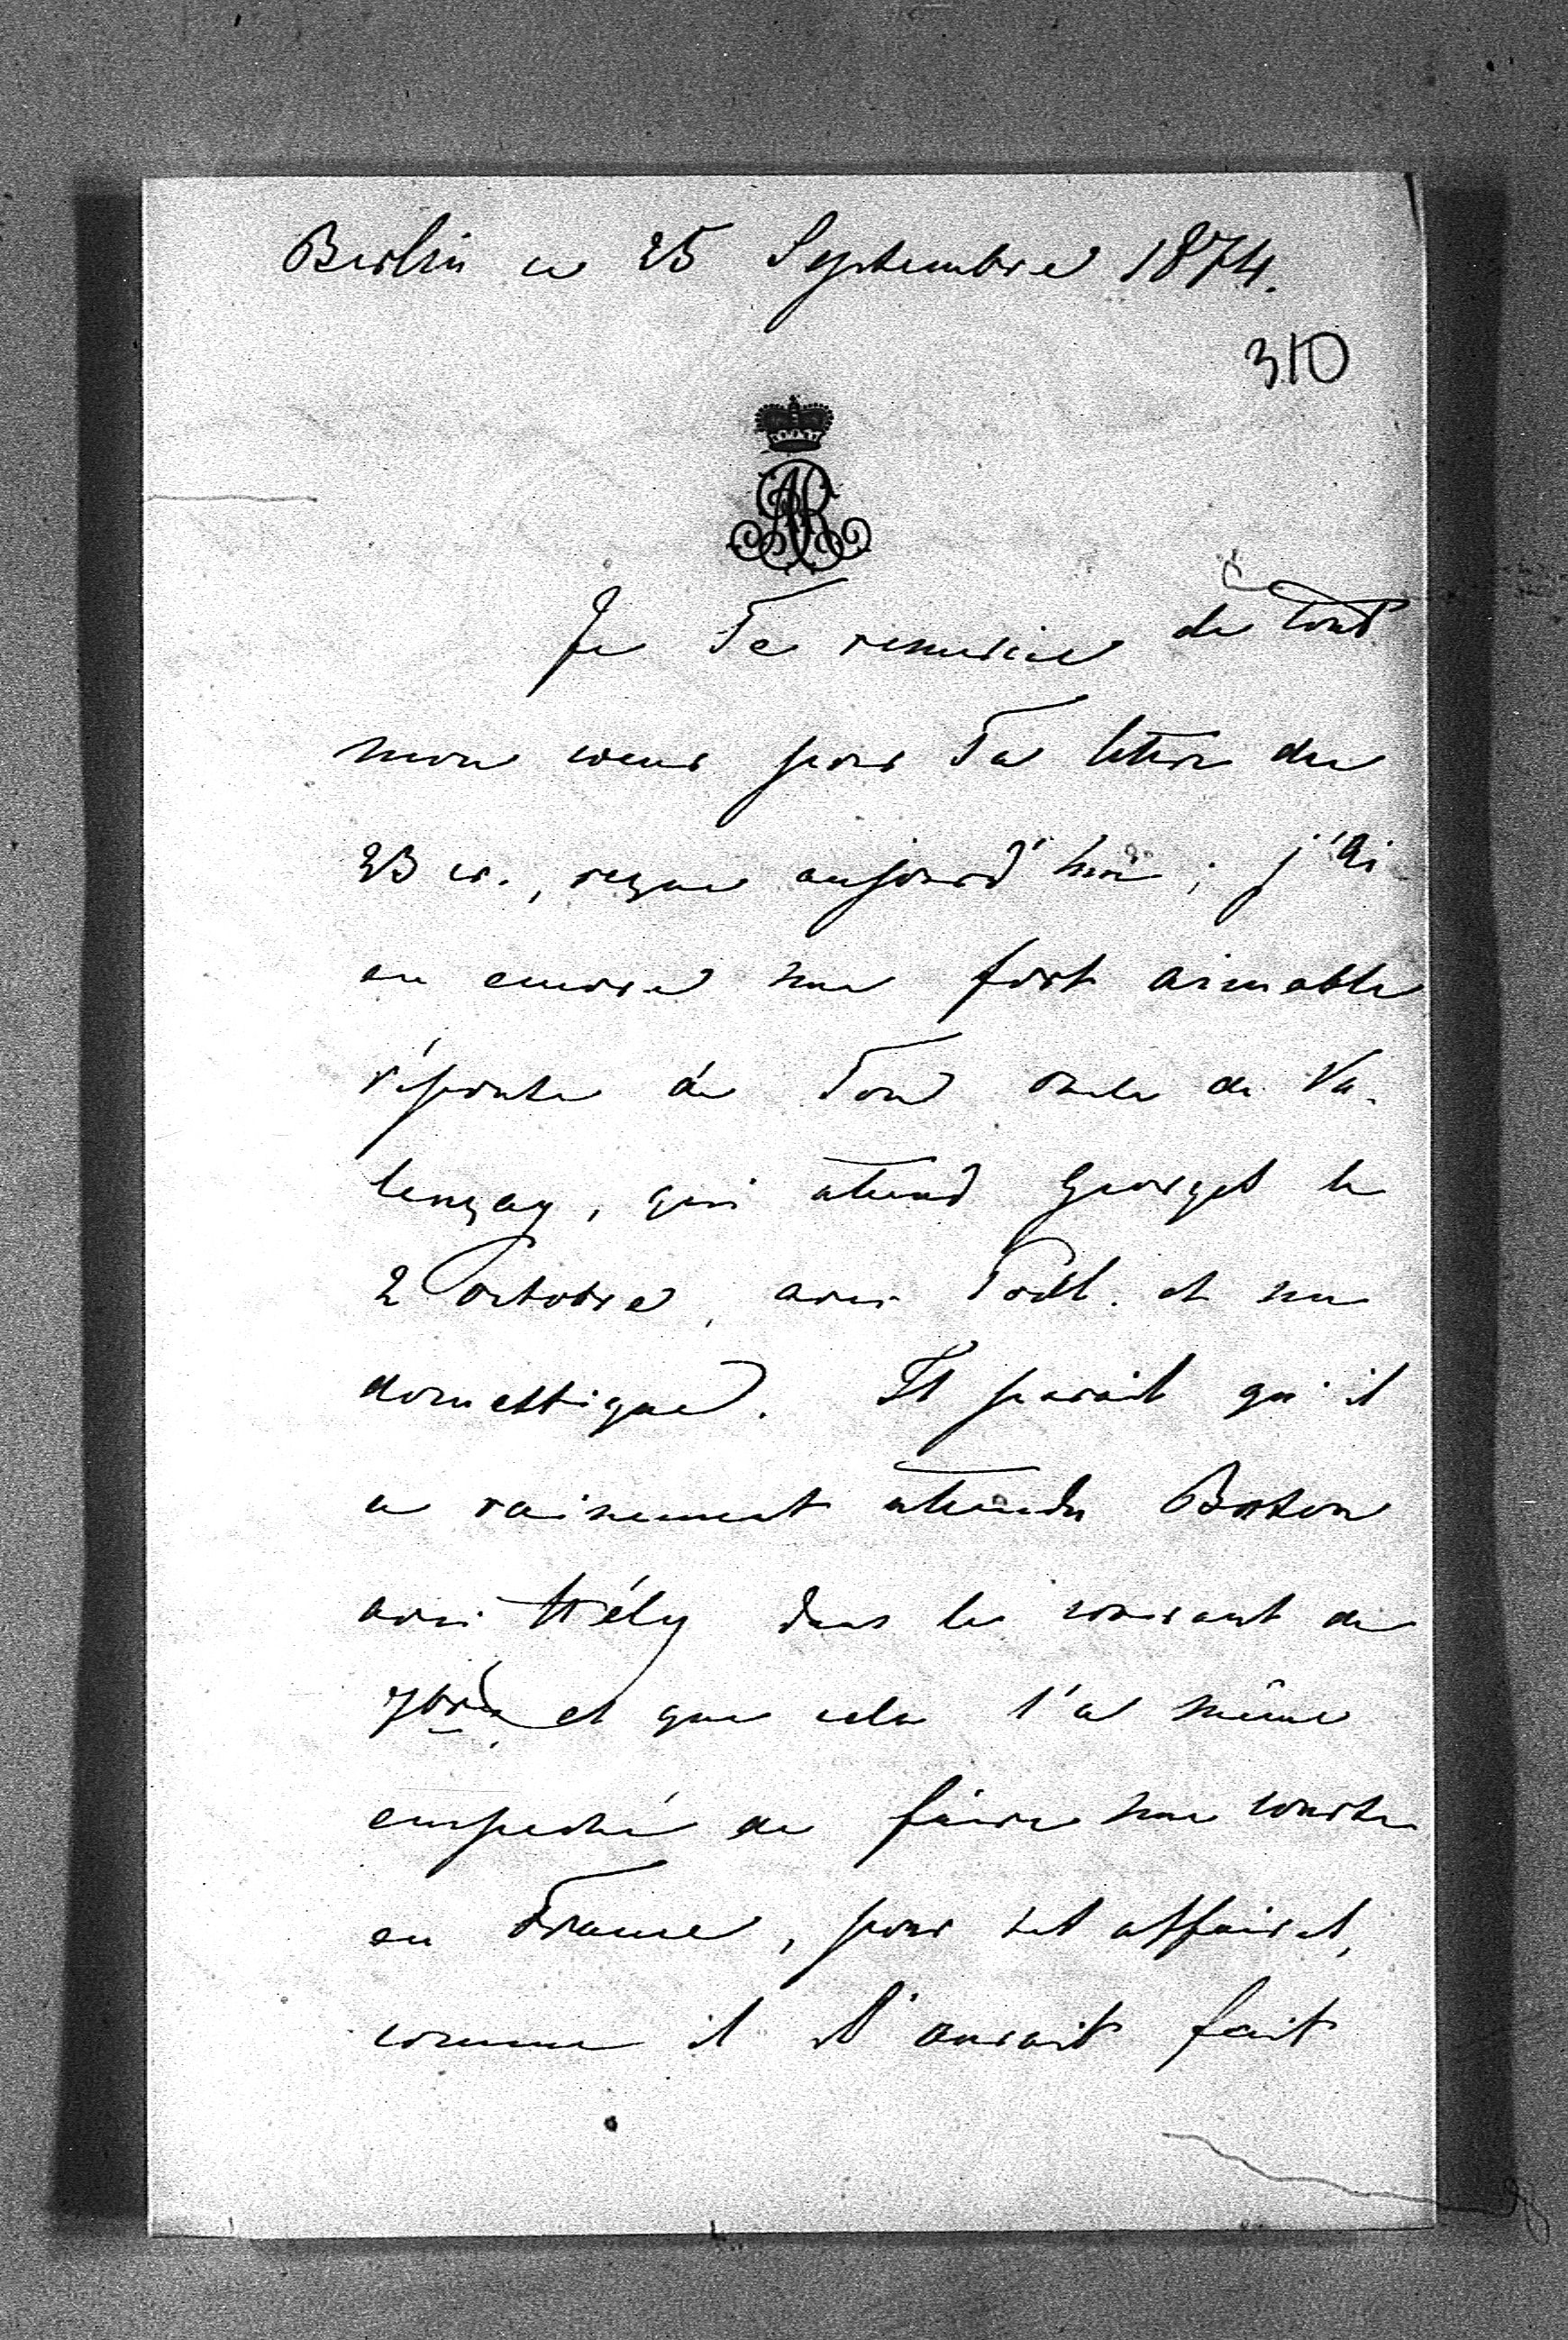 Berlin ce 25 Septembre 1874.
310
AR
Je Te remercie de tout
mon coeur pour Ta lettre du
23 cr., reçue aujourd'hui ; j'ai
eu encore une fort aimable
réponse de Ton oncle de Va-
lençay, qui attend Georges le
2 Octobre, avec Podl. et un
domestique. Il parait qu'il
a vainement attendu Boson
avec Hély dans le courant de
7bre, et que cela l'a même
empeché de faire une course
en France, pour ses affaires,
comme il l'aurait fait